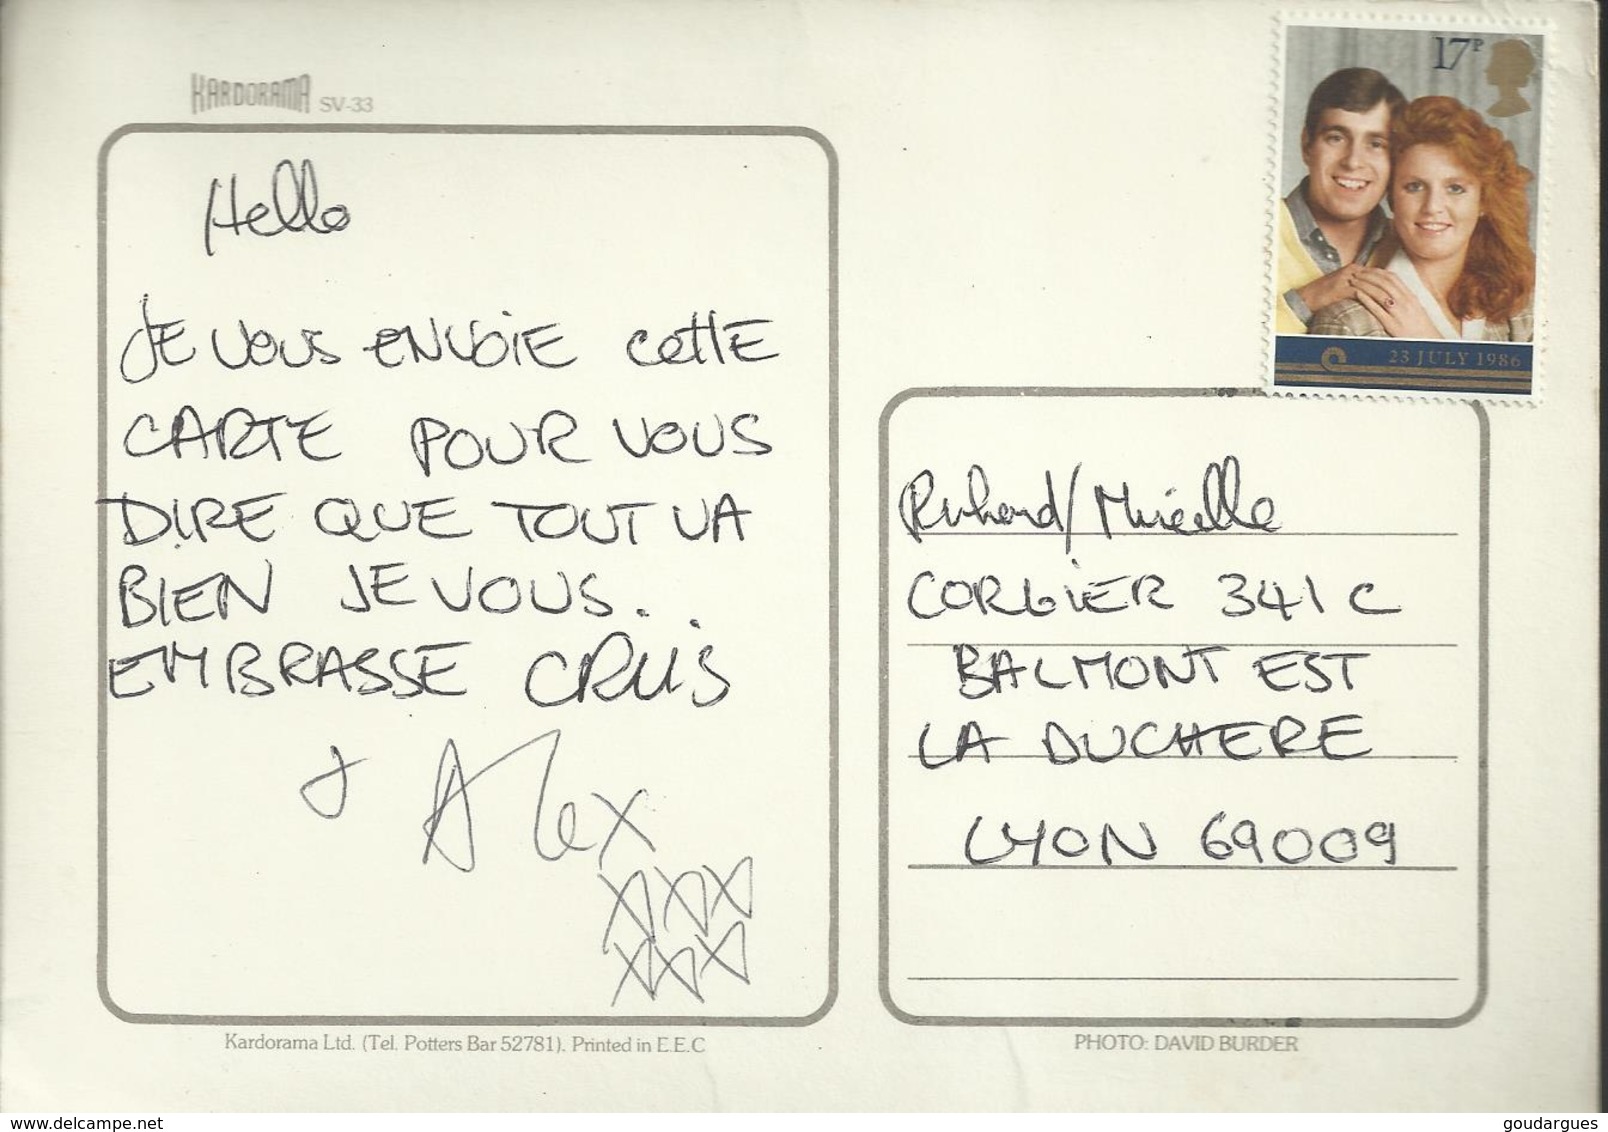 KARDORAMA SV-33
17P
23 JULY 1986
Hello
JE VOUS ENVOIE CETTE
CARTE POUR VOUS
DIRE QUE TOUT VA
BIEN JE VOUS..
EMBRASSE CRIS
+ Alex
XXX
XXX
/Mireille
CORGIER 341 C
BALMONT EST
LA DUCHERE
LYON 69009
Kardorama Ltd. (Tel. Potters Bar 52781). Printed in E.E.C
PHOTO: DAVID BURDER
www.delcampe.net
goudargues